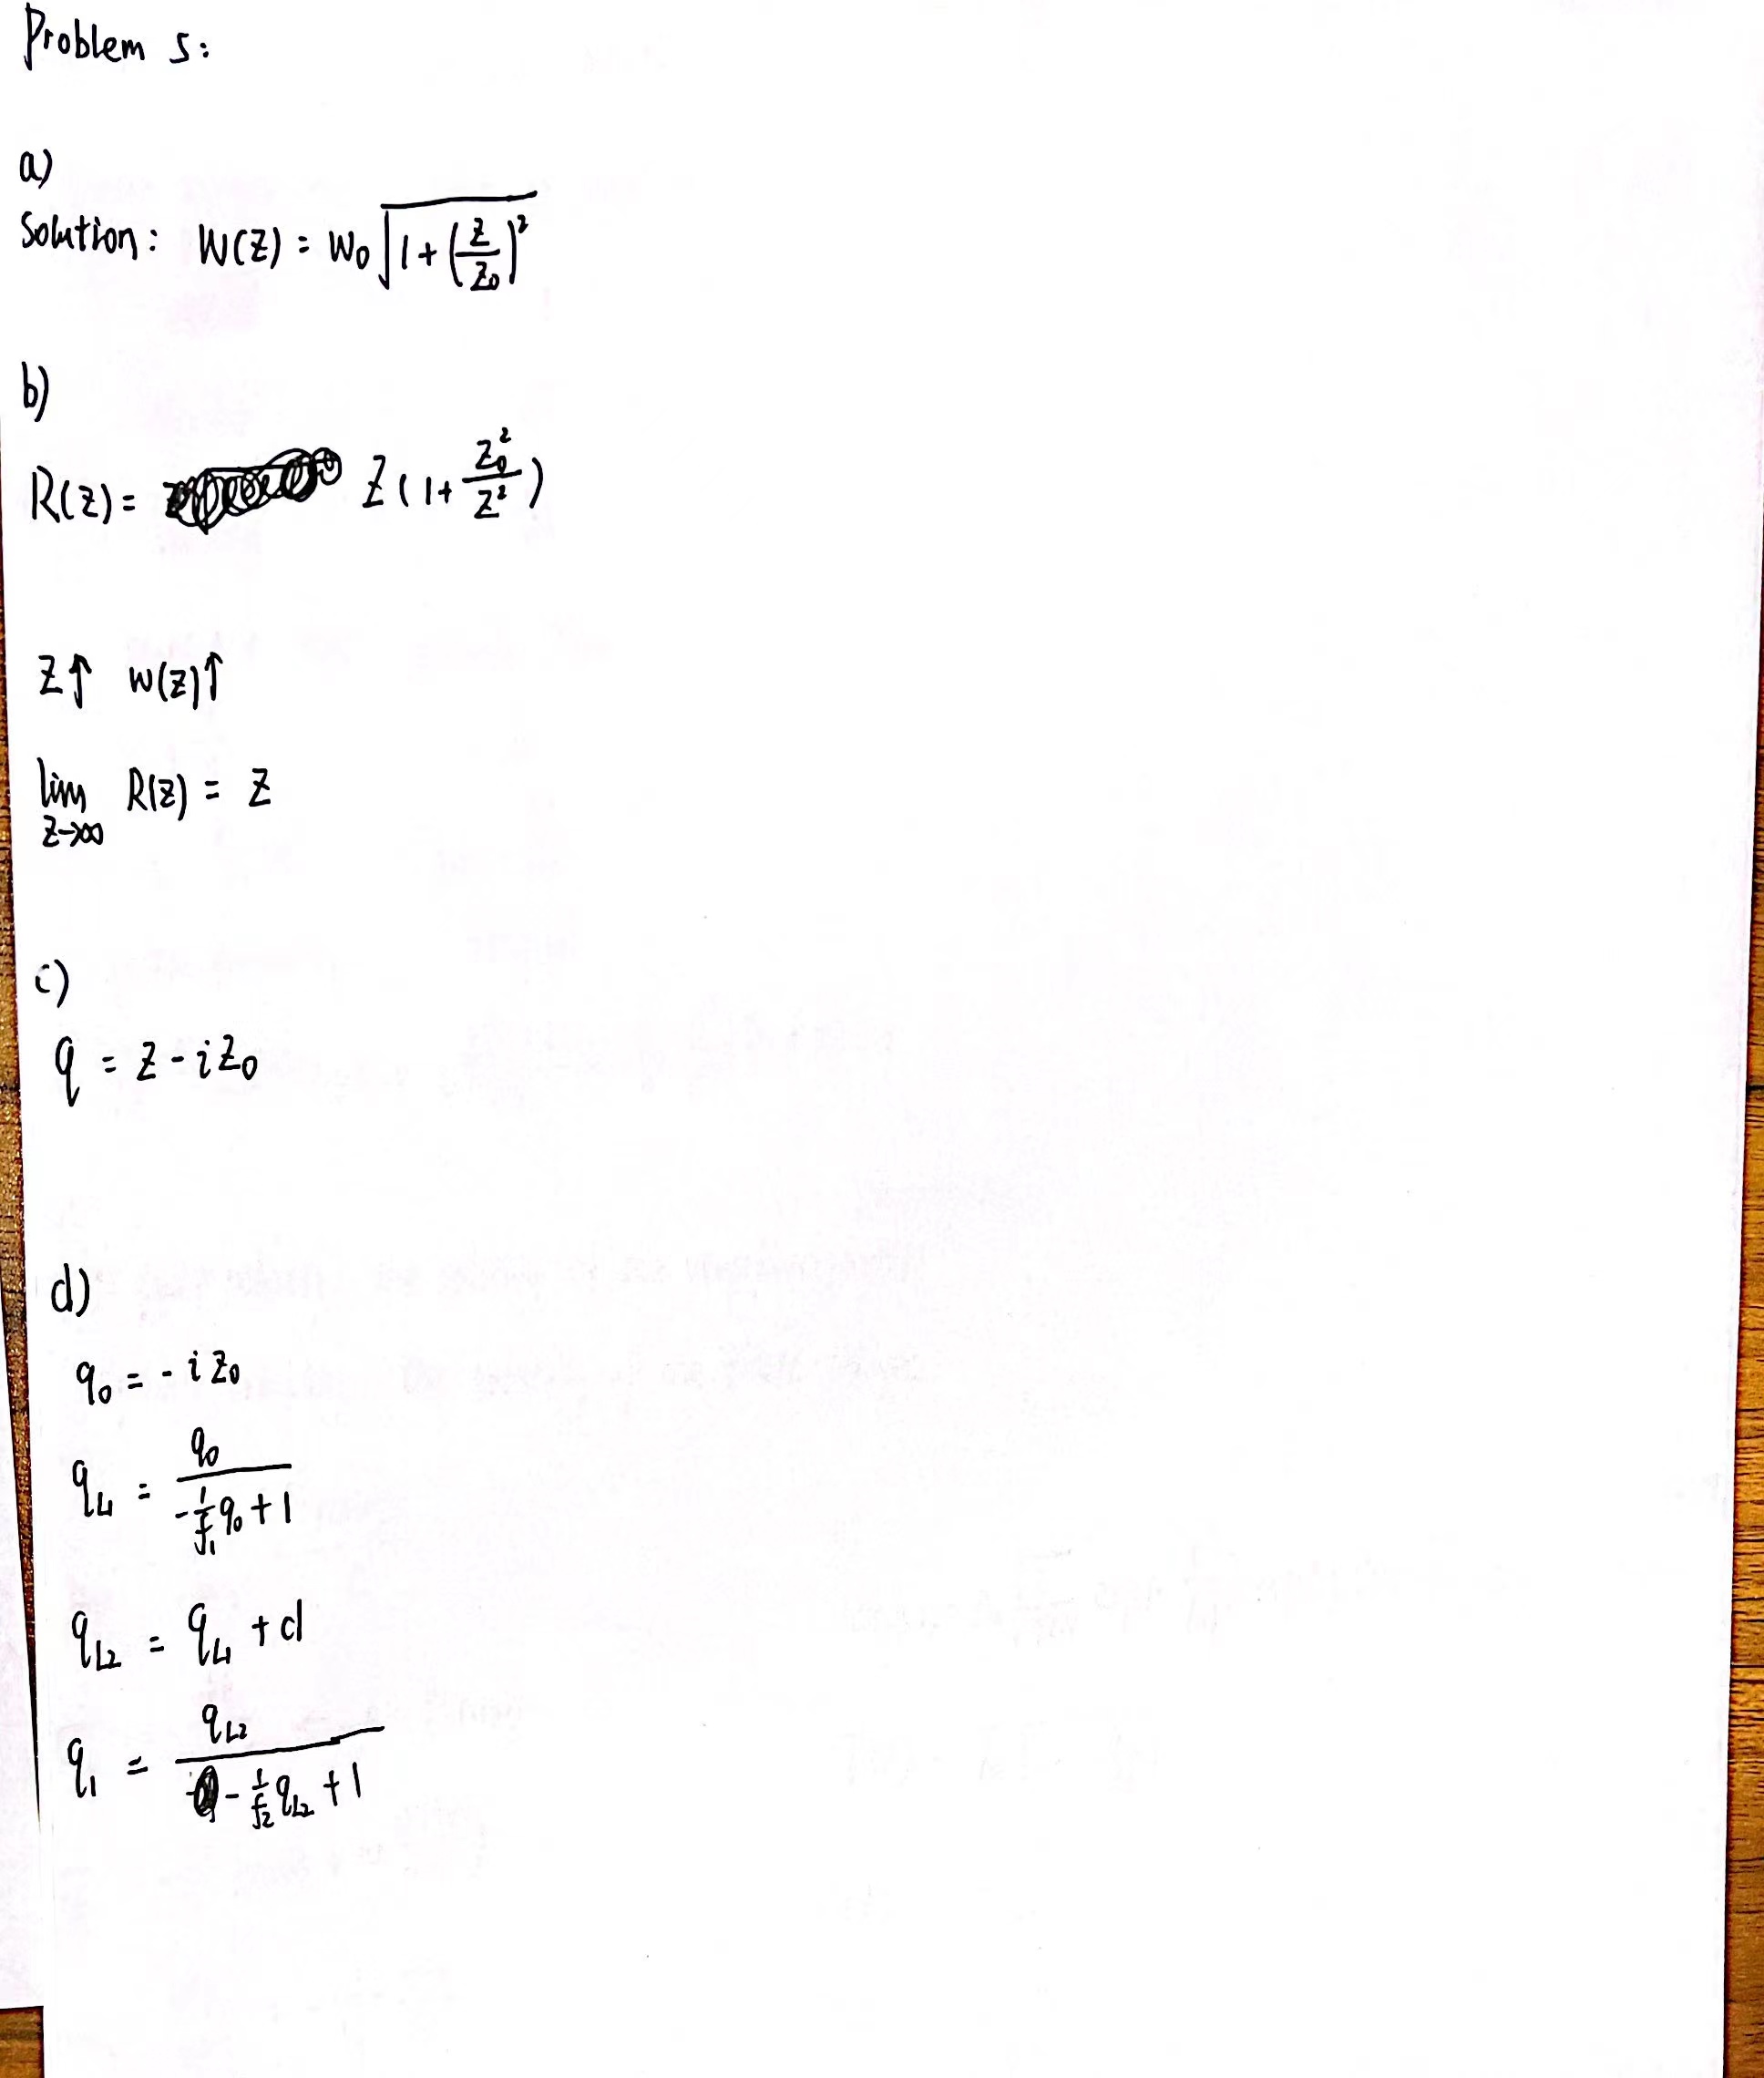 Problem 5:
a)
Solution: W(z) = W₀ √(1 + (z/z₀)²)
b)
R(z) = z(1 + z₀²/z²)
z↑ w(z)↑
lim z→∞ R(z) = z
c)
q = z - iz₀
d)
q₀ = - i z₀
q_L1 = q₀ / (-1/f₁ q₀ + 1)
q_L2 = q_L1 + d
q₁ = q_L2 / (- 1/f₂ q_L2 + 1)